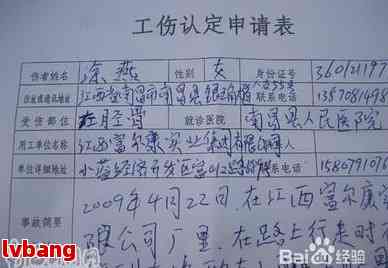 工伤认定申请表
伤者姓名 涂燕 性别 女 身份证号 360121197
住址或通讯地址 江西省南昌市南昌县 联系电话 1357081498
受伤部位 左胫骨 就诊医院 南昌县人民医院
用工单位名称 江西富尔康实业集团有限公司
单位详细地址 小蓝经济开发区富山 联系电话 1580791016
2009年4月22日,在江西富尔康实
事故简要
限公司厂里,在路上行走时
lvbang
Bai 百科